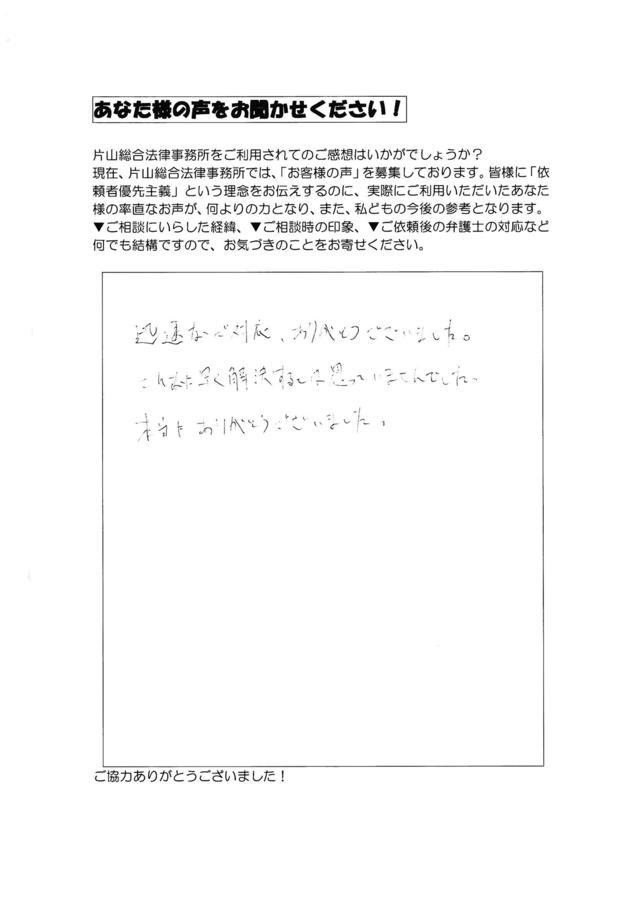 あなた様の声をお聞かせください！
片山総合法律事務所をご利用されてのご感想はいかがでしょうか？
現在、片山総合法律事務所では、「お客様の声」を募集しております。皆様に「依
頼者優先主義」という理念をお伝えするのに、実際にご利用いただいたあなた
様の率直なお声が、何よりの力となり、また、私どもの今後の参考となります。
▼ご相談にいらした経緯、▼ご相談時の印象、▼ご依頼後の弁護士の対応など
何でも結構ですので、お気づきのことをお寄せください。
迅速なご対応、ありがとうございました。
こんなに早く解決するとは思っていませんでした。
本当にありがとうございました。
ご協力ありがとうございました！